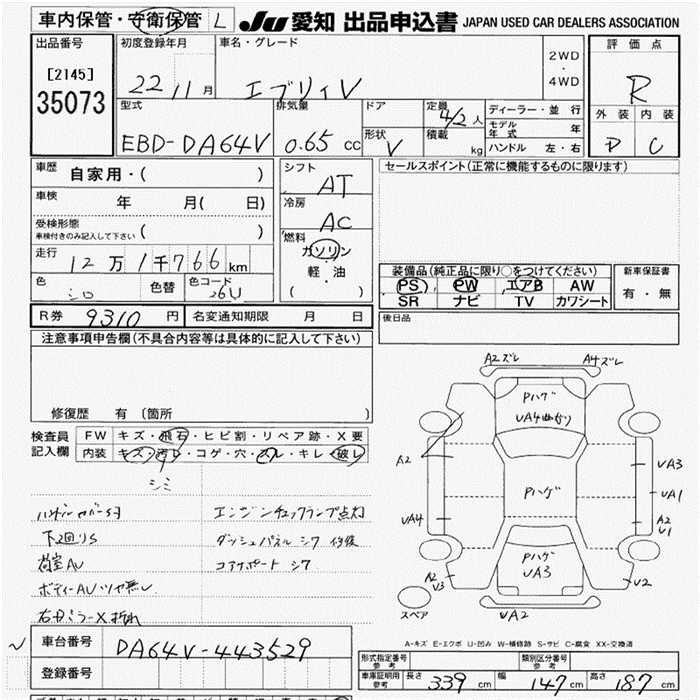 車内保管・守衛保管 L JU 愛知 出品申込書 JAPAN USED CAR DEALERS ASSOCIATION
出品番号 初度登録年月 車名・グレード 2WD・4WD 評価点
[2145] 22 11月 エブリィV R
35073
型式 排気量 ドア 定員 4/2人 ディーラー・並行 外装 内装
EBD-DA64V 0.65 cc 形状 V 積載 kg モデル年式 年 D C
ハンドル 左・右
車歴 自家用・( ) シフト AT セールスポイント(正常に機能するものに限ります)
車検 年 月( 日) 冷房 AC
受検形態 車検付きのみ記入して下さい ( )
燃料 ガソリン 軽・油 ( )
走行 12万1千766km
装備品(純正品に限り○をつけてください) 新車保証書
色 シロ 色替 色コード 26U PS PW エアB AW 有・無
SR ナビ TV カワシート
R券 9310円 名変通知期限 月 日 後日品
注意事項申告欄(不具合内容等は具体的に記入して下さい)
修復歴 有 〔箇所 〕
検査員 記入欄 FW キズ・飛石・ヒビ割・リペア跡・X要
内装 キズ・汚レ・コゲ・穴・スレ・キレ・破レ
シミ
エンジンチェックランプ点灯
下回りS ダッシュパネル シワ
荷室AU コアサポート シワ
ボディーAU ツヤ無し
右ドミラーX 折れ
A2ズレ A4ズレ
Pハゲ
UA4
A2 Pハゲ UA3
UA1
UA4 A2
U1
Pハゲ
UA3
A2
U3 U2
スペア UA2
A-キズ E-エクボ U-凹み W-補修跡 S-サビ C-腐食 XX-交換済
車台番号 DA64V-443529
登録番号
形式指定番号 参考 類別区分番号 参考
車庫証明用 参考 長さ 339 cm 幅 147 cm 高さ 187 cm